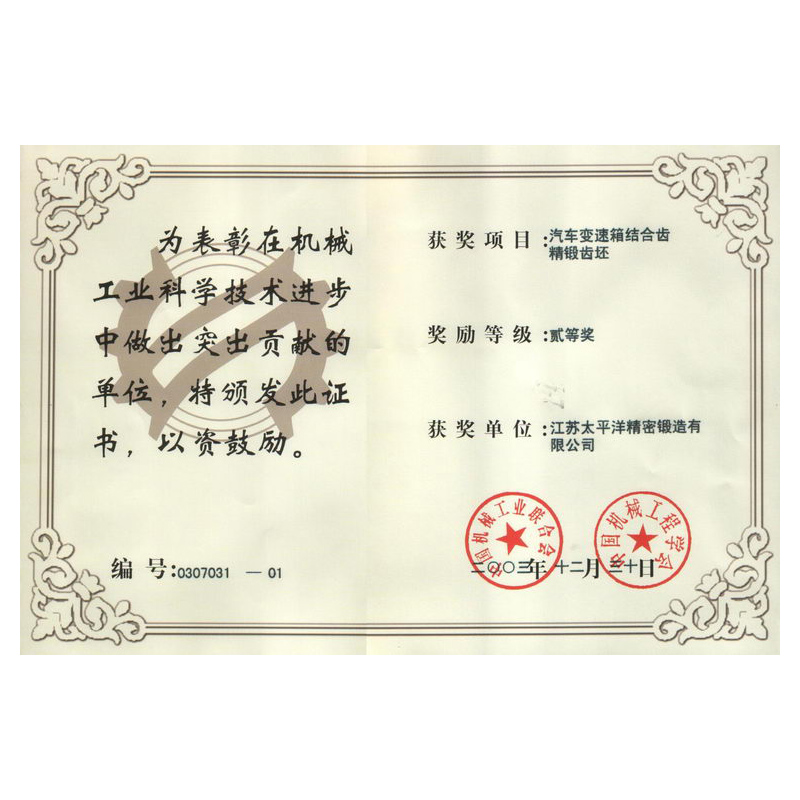 为表彰在机械
工业科学技术进步
中做出突出贡献的
单位，特颁发此证
书，以资鼓励。
编号:0307031 — 01
获奖项目:汽车变速箱结合齿
精锻齿坯
奖励等级:贰等奖
获奖单位:江苏太平洋精密锻造有
限公司
中国机械工业联合会
中国机械工程学会
二〇〇三年 十二月 三十日